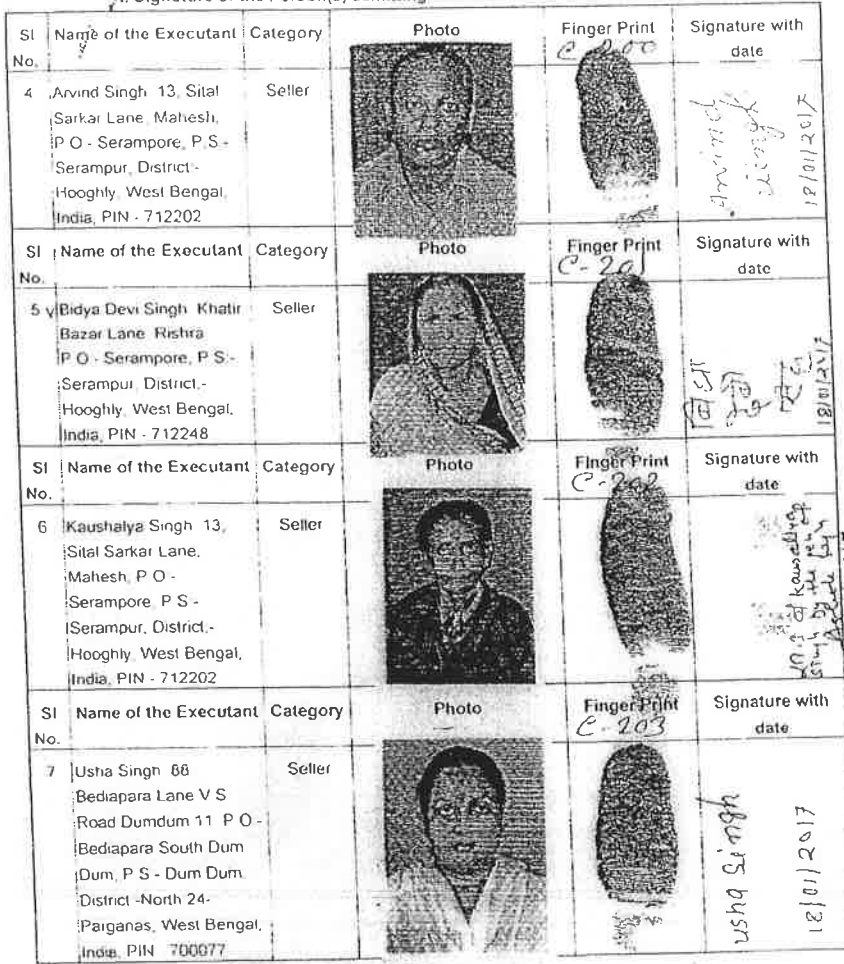 Signature of the Person(s)
SI No. Name of the Executant Category Photo Finger Print Signature with date
C-200
4 Arvind Singh 13, Sital Seller
Sarkar Lane, Mahesh,
P O - Serampore, P.S -
Serampur, District -
Hooghly, West Bengal,
India, PIN - 712202
Arvind Singh
18/01/2017
SI No. Name of the Executant Category Photo Finger Print Signature with date
C-201
5 Bidya Devi Singh Khatir Seller
Bazar Lane Rishra
P O - Serampore, P S -
Serampur, District.-
Hooghly, West Bengal,
India, PIN - 712248
18/01/2017
SI No. Name of the Executant Category Photo Finger Print Signature with date
C-202
6 Kaushalya Singh 13, Seller
Sital Sarkar Lane,
Mahesh, P O -
Serampore, P S -
Serampur, District.-
Hooghly, West Bengal,
India, PIN - 712202
of Kausallya
Singh by the pen of
SI No. Name of the Executant Category Photo Finger Print Signature with date
C-203
7 Usha Singh 88 Seller
Bediapara Lane V S
Road Dumdum 11 P O -
Bediapara South Dum
Dum, P S - Dum Dum
District -North 24-
Parganas, West Bengal,
India, PIN 700077
Usha Singh
18/01/2017